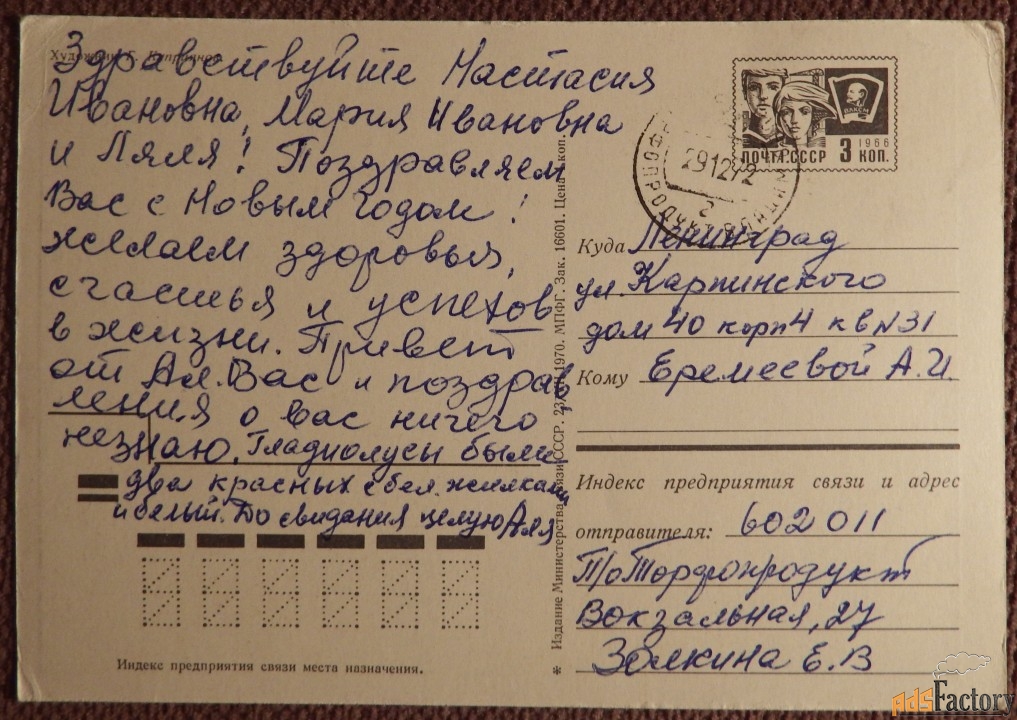 Художник Г.
Здравствуйте Настасия
Ивановна, Мария Ивановна
и Ляля! Поздравляем
Вас с Новым Годом!
желаем здоровья,
счастья и успехов
в жизни. Привет
от Ал. Вас и поздрав
ления о вас ничего
незнаю. Гладиолусы были
два красных с бел. жилками
и белый. До свидания целую Аля
Индекс предприятия связи места назначения.
* Издание Министерства связи СССР. 1970. МПФГ. Зак. 16601. Цена коп.
ВЛКСМ
1966
ПОЧТА СССР 3 КОП.
291272
2
Куда Ленинград
ул. Карпинского
дом 40 корп 4 кв N 31
Кому Еремеевой А.И.
Индекс предприятия связи и адрес
отправителя: 602011
П/о Торфопродукт
Вокзальная, 27
Е.В
AdsFactory